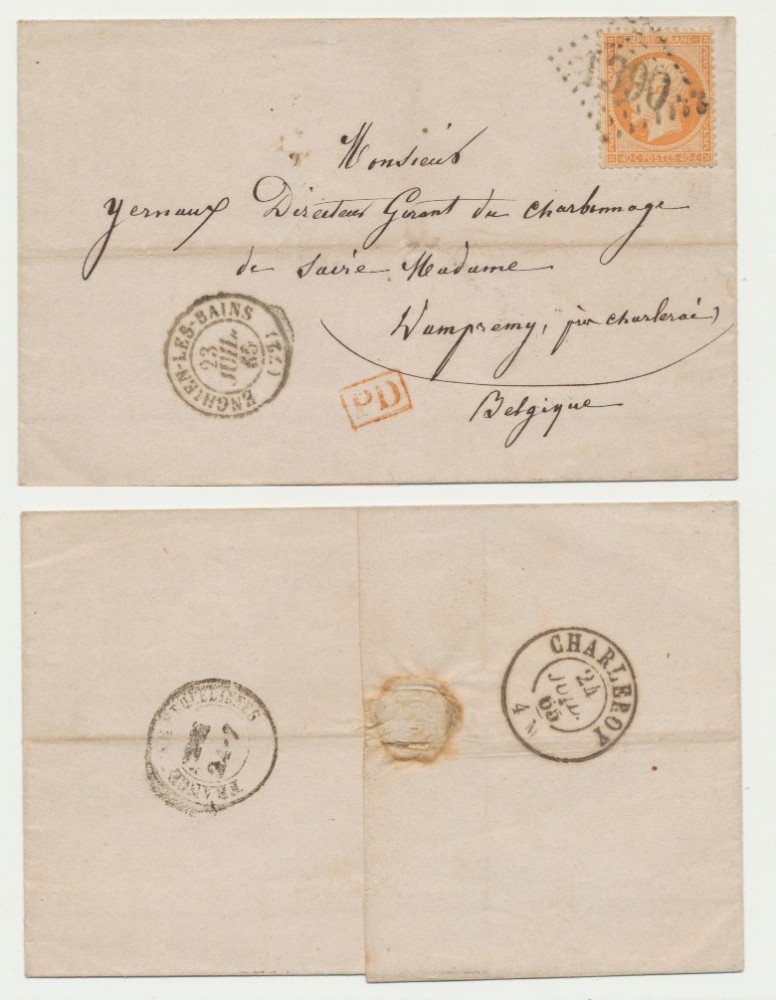 EMPIRE FRANC
1390
40-C-POSTES-40-C
Monsieur
Yernaux Directeur Gérant du charbonnage
de Sacré Madame
Dampremy, près charleroi
Belgique
ENGHIEN-LES-BAINS (72)
23
JUIL.
65
PD
CHARLEROY
24
JUIL.
65
4 M
FRANCE
24 7